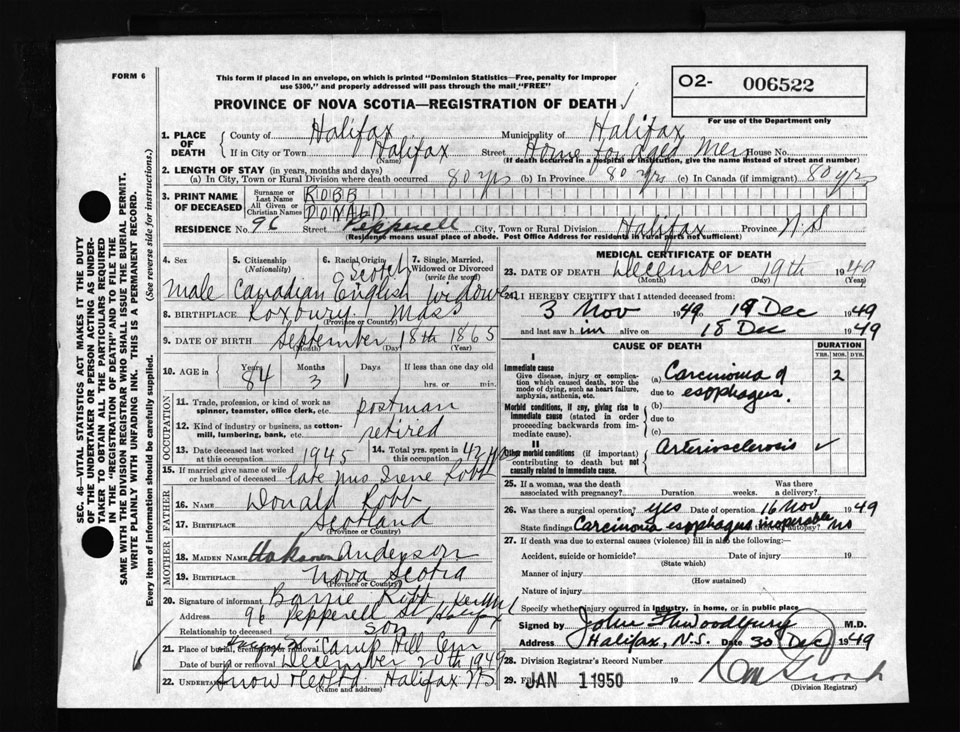 FORM 6
This form if placed in an envelope, on which is printed "Dominion Statistics—Free, penalty for improper
use $300," and properly addressed will pass through the mail "FREE"
O2- 006522
PROVINCE OF NOVA SCOTIA—REGISTRATION OF DEATH
For use of the Department only
1. PLACE OF DEATH
County of Halifax Municipality of Halifax
If in City or Town Halifax Street Home for aged Men House No.
(Name) (If death occurred in a hospital or institution, give the name instead of street and number)
2. LENGTH OF STAY (in years, months and days)
(a) In City, Town or Rural Division where death occurred 80 yrs (b) In Province 80 yrs (c) In Canada (if immigrant) 80 yrs
3. PRINT NAME OF DECEASED
Surname or Last Name ROBB
All Given or Christian Names DONALD
RESIDENCE No. 96 Street Pepperell City, Town or Rural Division Halifax Province N.S
(Residence means usual place of abode. Post Office Address for residents in rural parts not sufficient)
4. Sex 5. Citizenship (Nationality) 6. Racial Origin 7. Single, Married, Widowed or Divorced (write the word)
Scotch
male Canadian English widower
8. BIRTHPLACE Roxbury Mass
(Province or Country)
9. DATE OF BIRTH September 18th 1865
(Month) (Day) (Year)
10. AGE in Years Months Days If less than one day old
84 3 1 hrs. or min.
OCCUPATION
11. Trade, profession, or kind of work as spinner, teamster, office clerk, etc. postman
12. Kind of industry or business, as cotton-mill, lumbering, bank, etc. retired
13. Date deceased last worked at this occupation 1945 14. Total yrs. spent in this occupation 42
15. If married give name of wife or husband of deceased late Mrs Irene Robb
FATHER
16. Name Donald Robb
17. Birthplace Scotland
MOTHER
18. MAIDEN NAME Anderson
19. BIRTHPLACE Nova Scotia
(Province or Country)
20. Signature of informant Robb
Address 96 Pepperell St Halifax
Relationship to deceased son
21. Place of burial, cremation or removal Camp Hill Cem
Date of burial or removal December 20th 1949
22. UNDERTAKER Snow Halifax NS
(Name and address)
MEDICAL CERTIFICATE OF DEATH
23. DATE OF DEATH December 19th 1949
(Month) (Day) (Year)
24. I HEREBY CERTIFY that I attended deceased from:
3 Nov 1949 to 19 Dec 1949
and last saw him alive on 18 Dec 1949
CAUSE OF DEATH DURATION
YRS. MOS. DYS.
I
Immediate cause
Give disease, injury or complication which caused death, NOT the mode of dying, such as heart failure, asphyxia, asthenia, etc.
(a) Carcinoma of 2
due to esophagus.
Morbid conditions, if any, giving rise to immediate cause (stated in order proceeding backwards from immediate cause).
(b)
due to
(c)
II
Other morbid conditions (if important) contributing to death but not causally related to immediate cause.
Arteriosclerosis ✓
25. If a woman, was the death associated with pregnancy? Duration weeks. Was there a delivery?
26. Was there a surgical operation? yes Date of operation 16 Nov 1949
State findings Carcinoma esophagus inoperable Was there autopsy? no
27. If death was due to external causes (violence) fill in also the following:—
Accident, suicide or homicide? Date of injury 19
(State which)
Manner of injury
(How sustained)
Nature of injury
Specify whether injury occurred in industry, in home, or in public place
Signed by John Woodbury M.D.
Address Halifax, N.S. Date 30 Dec 1949
28. Division Registrar's Record Number
29. Filed JAN 1 1950 19
(Division Registrar)
SEC. 46—VITAL STATISTICS ACT MAKES IT THE DUTY
OF THE UNDERTAKER OR PERSON ACTING AS UNDERTAKER TO OBTAIN ALL THE PARTICULARS REQUIRED
IN THE "REGISTRATION OF DEATH" AND TO FILE THE
SAME WITH THE DIVISION REGISTRAR WHO SHALL ISSUE THE BURIAL PERMIT.
WRITE PLAINLY WITH UNFADING INK. THIS IS A PERMANENT RECORD.
Every item of information should be carefully supplied. (See reverse side for instructions.)